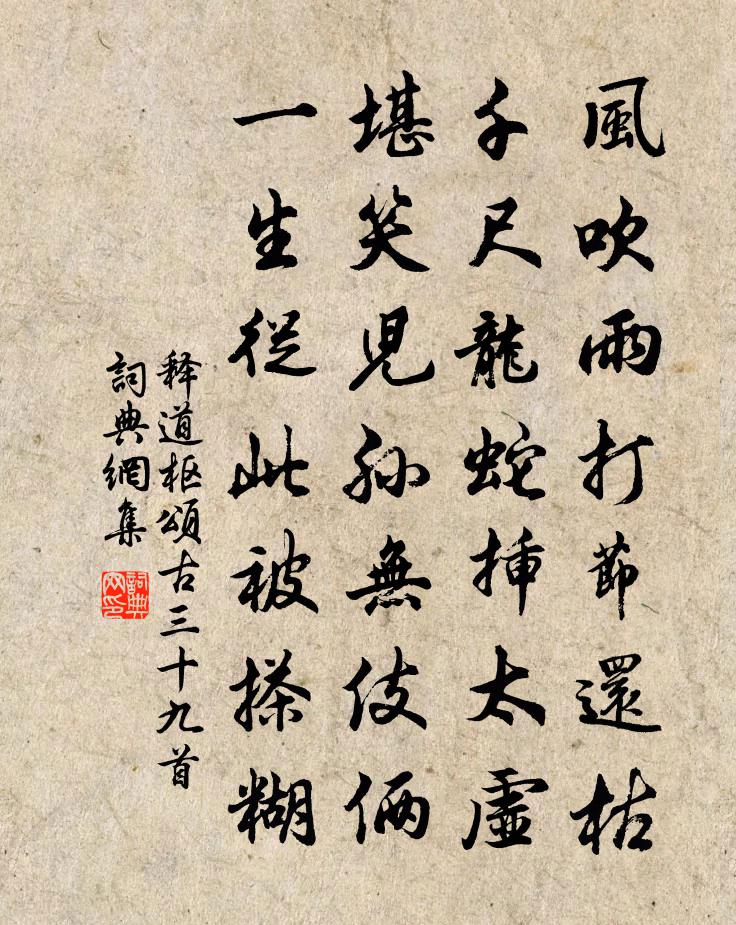 風吹雨打節還枯
千尺龍蛇揷太虛
堪笑児孫無伎倆
一生從此被搽糊
释道枢頌古三十九首
詞典網集
詞典网印